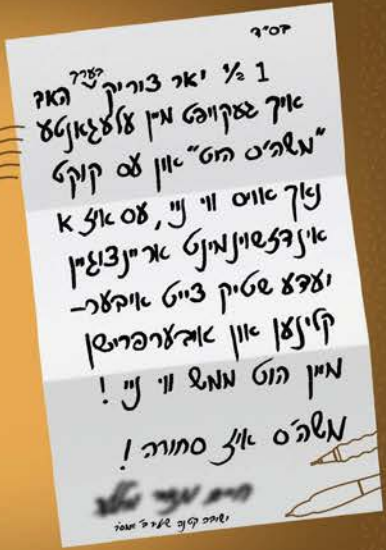 בס״ד
בערך
1 ½ יאר צוריק האב
איך געקויפט מיין עלעגאנטע
"משה'ס הוט" און עס קוקט
נאך אויס ווי ניי, עס איז א
אינדזשוינמינט אריינצוגיין
יעדע שטיק צייט איבער-
קלינען און איבערפרישן
מיין הוט ממש ווי ניי !
משה'ס איז סחורה !
ישיבה קטנה